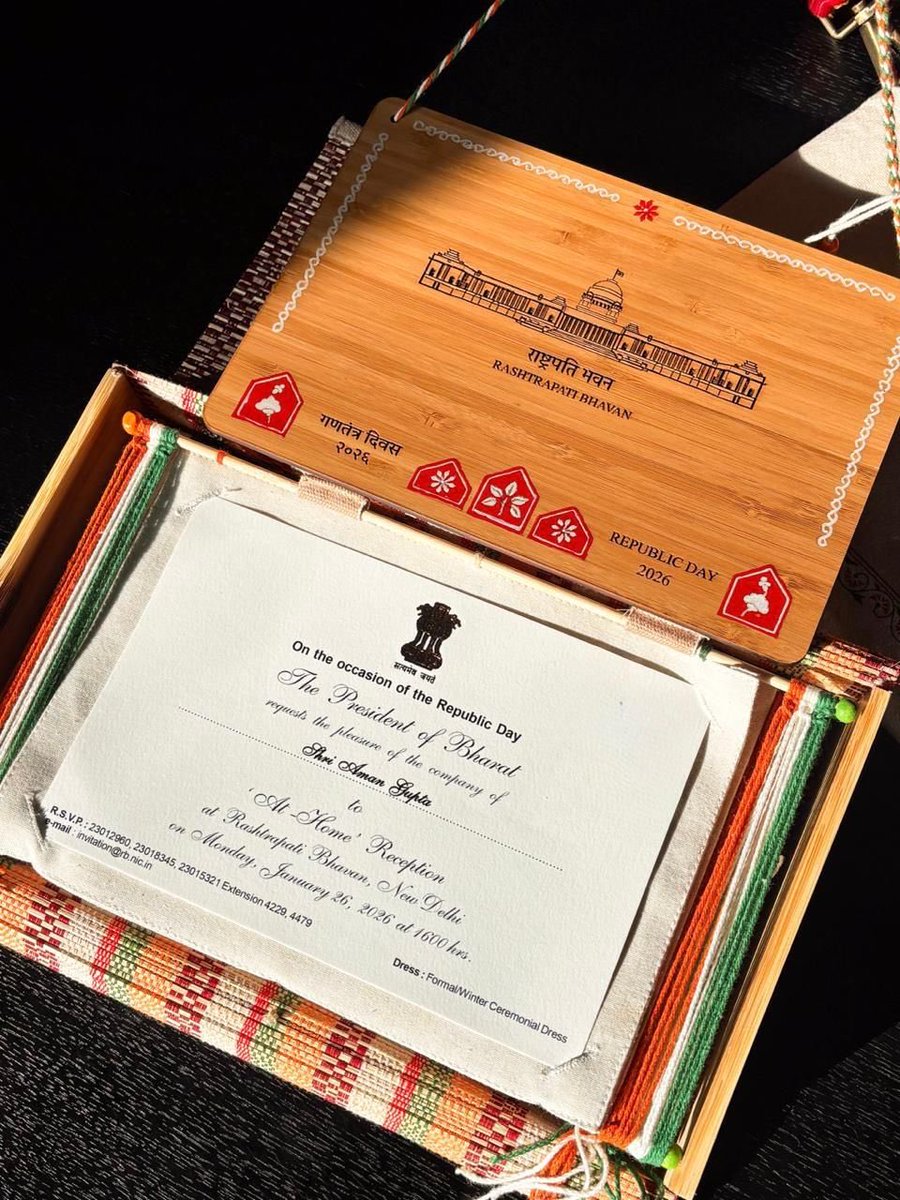 राष्ट्रपति भवन
RASHTRAPATI BHAVAN
गणतंत्र दिवस
२०२६
REPUBLIC DAY
2026
सत्यमेव जयते
On the occasion of the Republic Day
The President of Bharat
requests the pleasure of the company of
Shri Aman Gupta
to
'At -Home' Reception
at Rashtrapati Bhavan, New Delhi
on Monday, January 26, 2026 at 1600 hrs.
R.S.V.P. : 23012960, 23018345, 23015321 Extension 4229, 4479
e-mail : invitation@rb.nic.in
Dress : Formal/Winter Ceremonial Dress